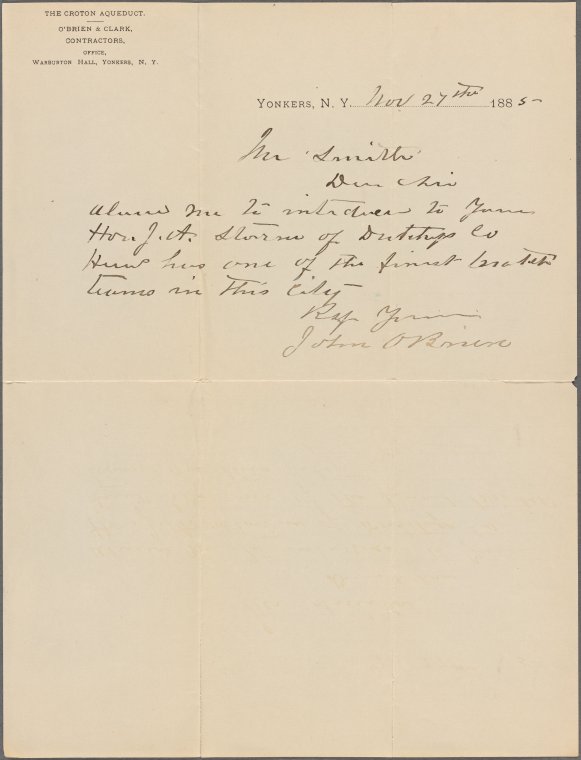 THE CROTON AQUEDUCT.
O'BRIEN & CLARK,
CONTRACTORS,
OFFICE,
WARBURTON HALL, YONKERS, N. Y.
YONKERS, N. Y. Nov 27th 1885
Mr Smith
Dear Sir
Alow me to introduce to Your
Hon J. A. Storm of Dutchess Co
has one of the finest match
teams in this City
Resp Yours
John O'Brien